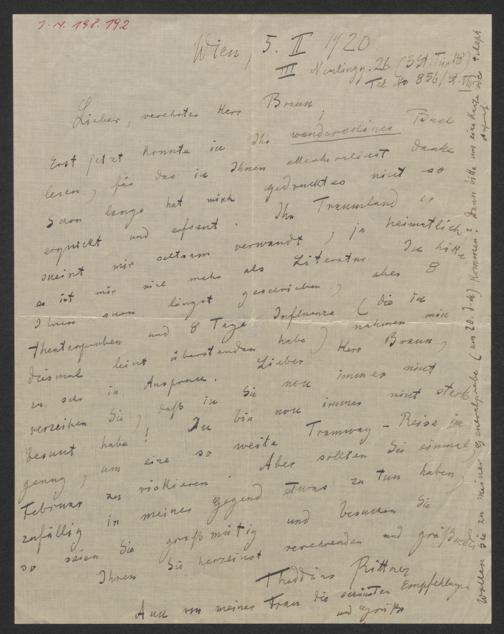 I.N. 198.792
Wien, 5. II 1920
III Neulingg. 26
Tel.
Lieber, verehrter Herr Braun,
Erst jetzt konnte ich Ihr wundervolles Buch
lesen, für das ich Ihnen allerherzlichst danke.
Schon lange hat mich gedrucktes nicht so
erquickt und erfreut. Ihr Traumland es
scheint mir seltsam verwandt, ja heimatlich,
es ist mir viel mehr als Literatur. Ich hätte
Ihnen schon längst geschrieben, aber 8
Theaterproben und 8 Tage Influenza (die ich
diesmal leicht überstanden habe) nahmen mich
zu sehr in Anspruch. Lieber Herr Braun,
verzeihen Sie, daß ich Sie noch immer nicht
besucht habe! Ich bin noch immer nicht stark
genug, um eine so weite Tramway-Reise im
Februar zu riskieren. Aber sollten Sie einmal
zufällig in meiner Gegend etwas zu tun haben,
so seien Sie großmütig und besuchen Sie
Ihren Sie herzlichst verehrenden und grüßenden
Thaddäus Rittner
Auch von meiner Frau die schönsten Empfehlungen
und Grüße
Wollen Sie zu meiner Generalprobe (am 20. d.) kommen? Dann bitte um eine Karte oder teleph.